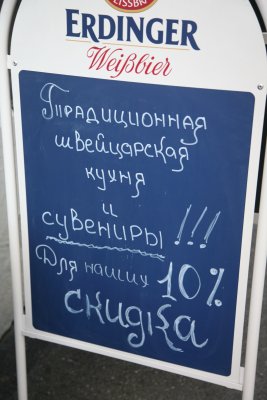 ERDINGER
Weißbier
Традиционная
швейцарская
кухня
и
сувениры !!!
Для наших 10%
скидка